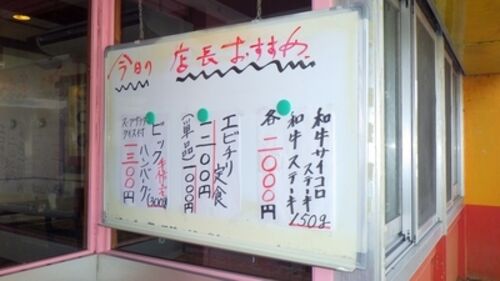 今日の 店長おすすめ
和牛サイコロステーキ
和牛ステーキ 150g
各二〇〇〇円
エビチリ定食
一二〇〇円
(単品)一〇〇〇円
ビック手作りハンバーグ(300g)
スープサラダライス付
一三〇〇円